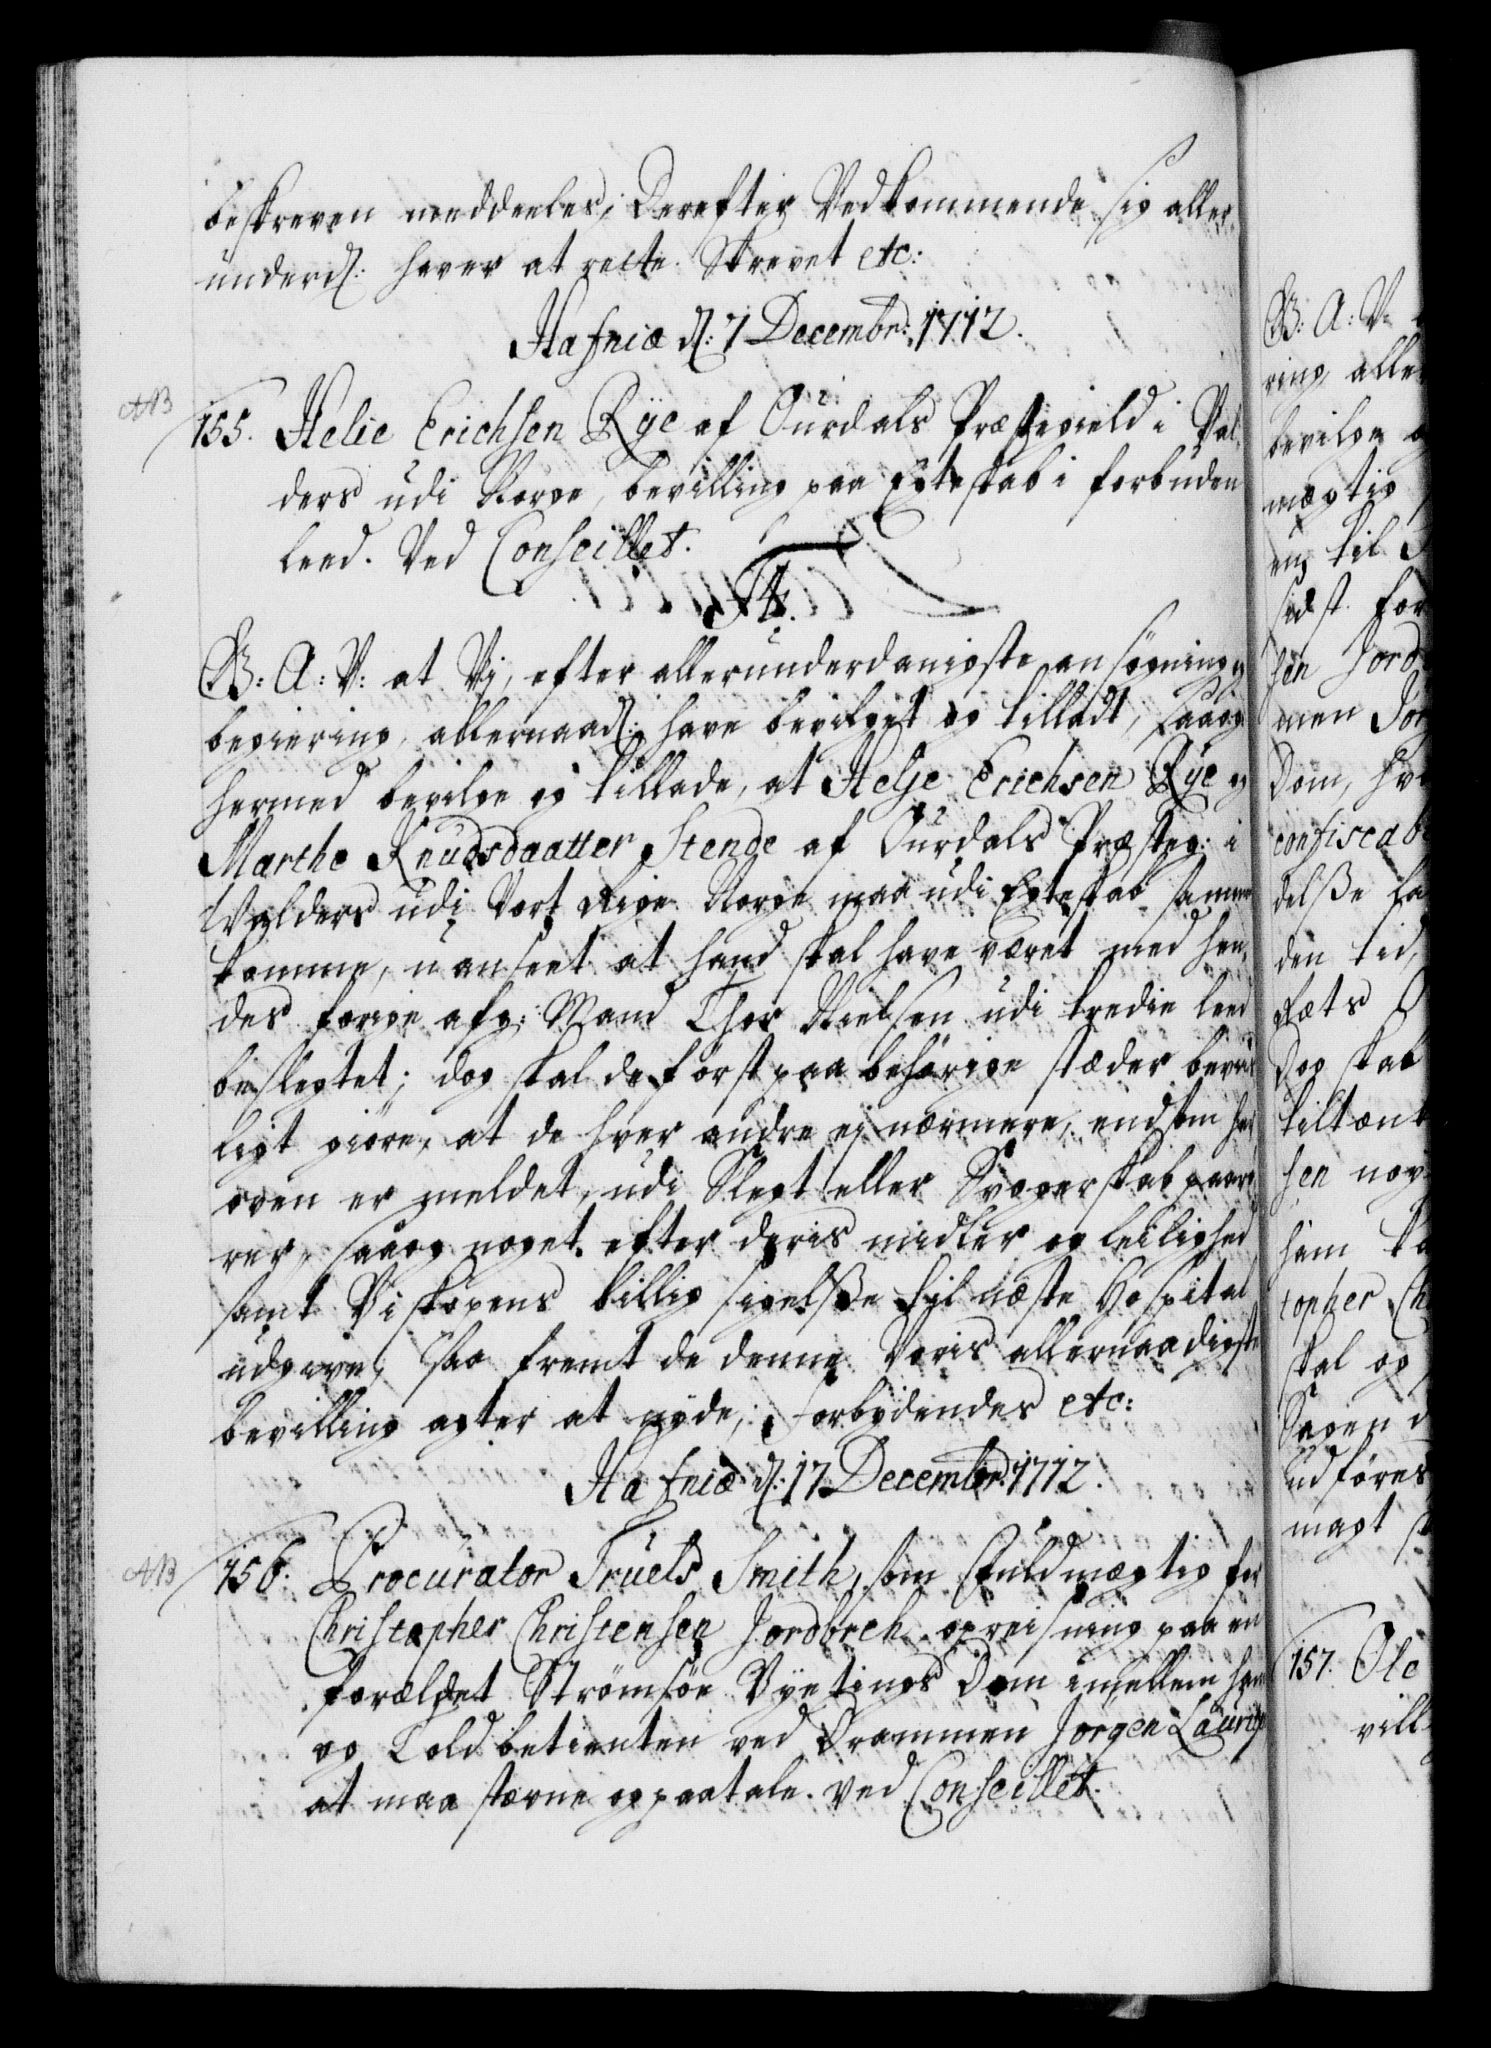 beskreven meddeeles; Derefter Vedkommende sig aller-
underd: haver at rette. Skrevet etc:
Hafniæ d: 7 Decembr: 1712.
NB
155. Helie Erichsen Rÿe af Ourdals Præstegield i Val-
ders udi Norge, bevilling paa Egteskab i forbuden
leed. Ved Conseillet.
F 4ts.
G: A: V: at Vj, efter allerunderdanigste ansøgning og
begiering, allernaad: have bevilget og tilladt, saa og
hermed bevilge og tillade, at Helje Erichsen Rÿe og
Marthe Knudsdaatter Stende af Ourdals Præsteg: i
Walders udi Vort Rige Norge maa udi Egteskab sammen
komme, uanseet at hand skal have været med hen-
des forige afg: Mand Thor Nielsen udi tredie leed
beslegtet; dog skal de først paa behørige stæder bevis-
ligt giøre, at de hver andre ej nærmere, end som her
oven er meldet, udi Slegt eller Svogerskab paarø-
rer, saa og noget efter deris midler og leilighed
samt Biskopens billig sigelsse til næste Hospital
udgive, saa fremt de denne Voris allernaadigste
bevilling agter at nyde; Forbydendes etc:
Hafniæ d: 17 Decembr: 1712.
NB
156. Procurator Truels Smith, som Fuldmægtig for
Christopher Christensen Jordbreh opreisning paa en
forældet Strømsøe Byetings Dom imellem ham
og Toldbetienten ved Drammen Jørgen Lauritz
at maa stævne og paatale. Ved Conseillet.
G: A: V:
ring, alle
bevilge og
mægtig
en til
sidst for
sen Jord
men Jør
Dom, hv
confiscab
delsse
den tid,
Ræts
Dog skal
tiltænt
sen nog
ham
topher Ch
skal og
Sagen
udføres
magt
157. Ole
vill